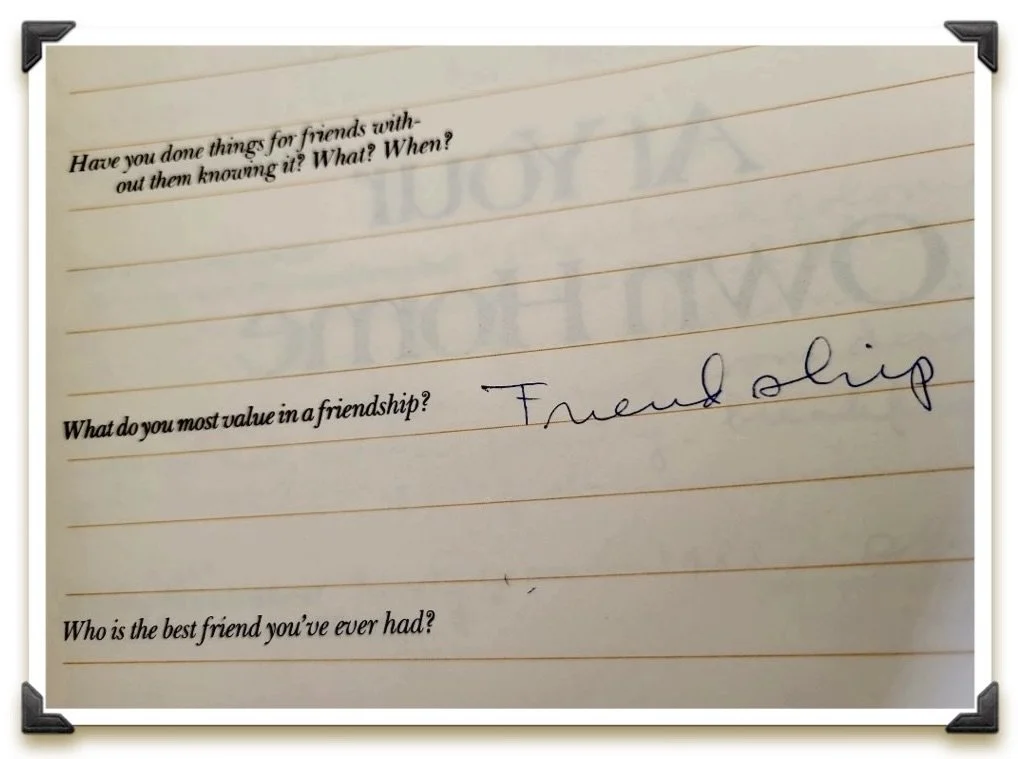 Have you done things for friends with-
out them knowing it? What? When?
At Your
Own Home
What do you most value in a friendship? Friendship
Who is the best friend you've ever had?